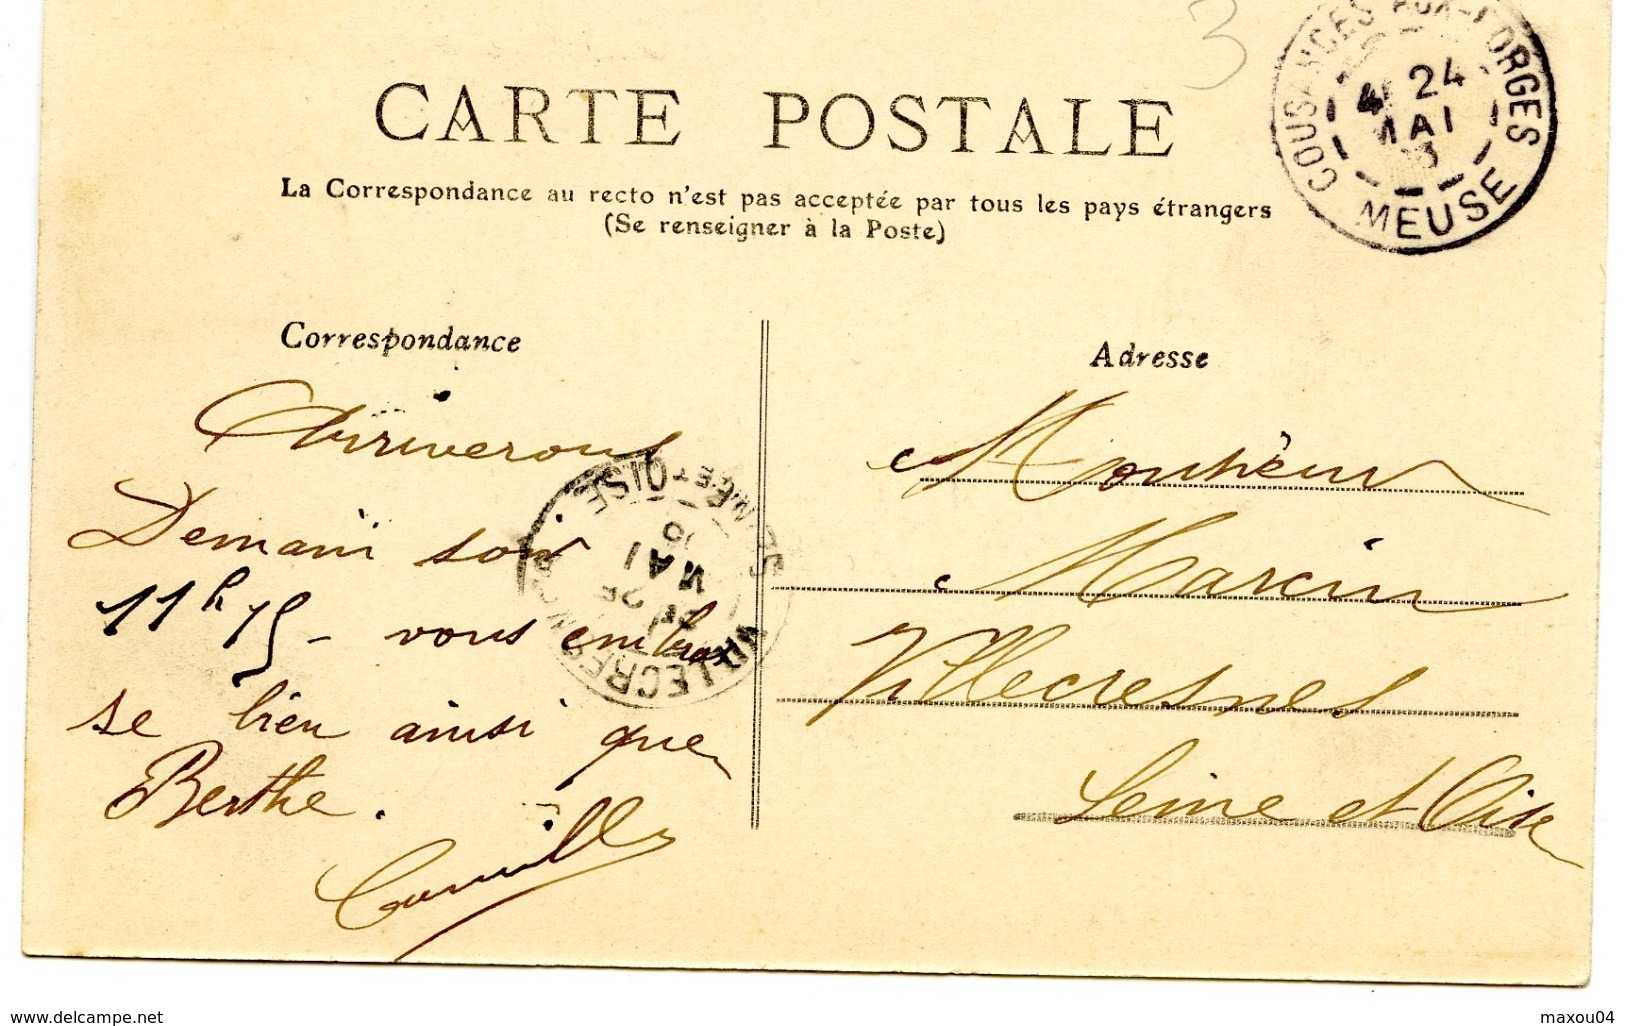 3
CARTE POSTALE
La Correspondance au recto n'est pas acceptée par tous les pays étrangers
(Se renseigner à la Poste)
COUSANCES AUX-FORGES
24
MAI
MEUSE
Correspondance
Arriverons
Demain soir
11h 15 - vous embras
se bien ainsi que
Berthe.
Camille
VILLECRESNES
SEINE-ET-OISE
25
MAI
08
Adresse
Monsieur
Marcin
Villecresnes
Seine et Oise
www.delcampe.net
maxou04